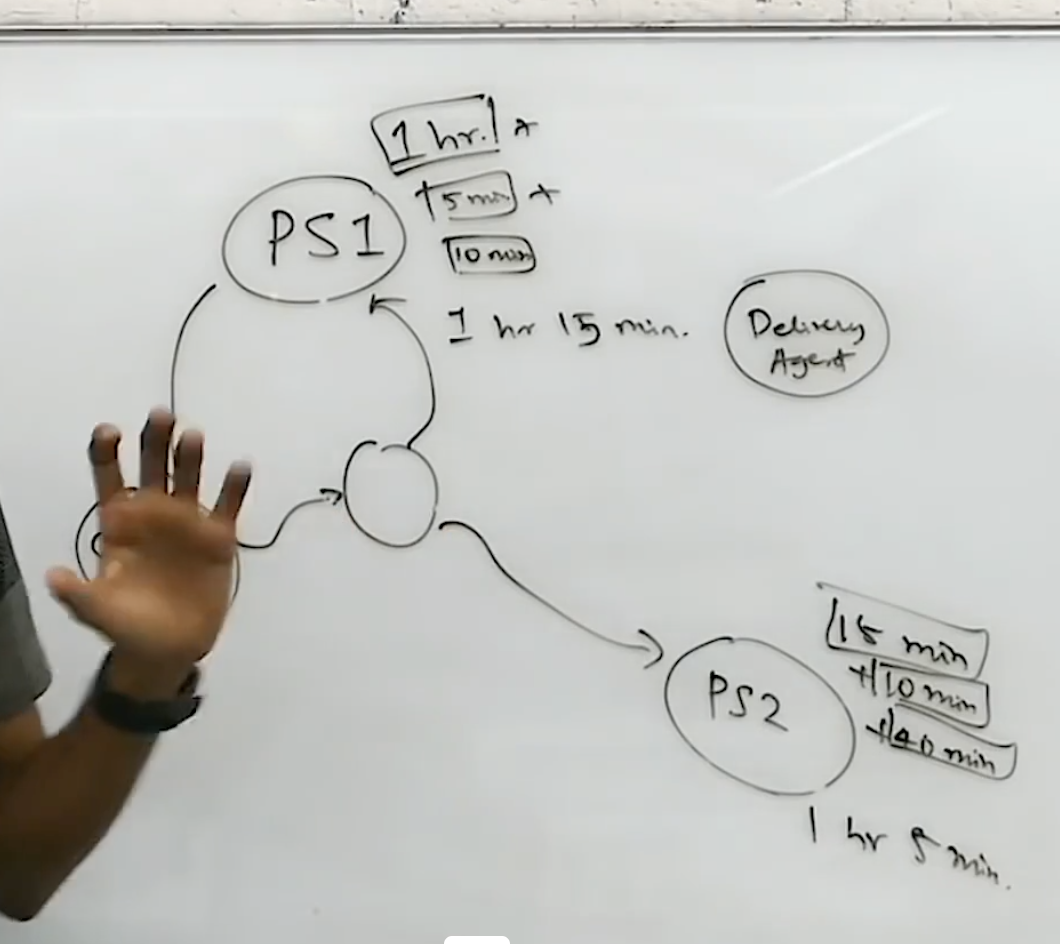 1 hr. +
5 min +
10 min
PS1
1 hr 15 min.
Delivery
Agent
15 min
+10 min
+40 min
PS2
1 hr 5 min.